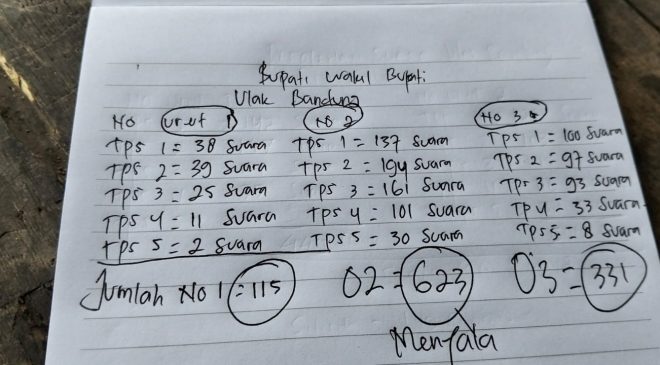 Bupati Wakil Bupati
Ulak Bandung
NO urut 1 NO 2 NO 3
TPS 1 = 38 Suara TPS 1 = 137 Suara TPS 1 = 100 Suara
TPS 2 = 39 Suara TPS 2 = 194 Suara TPS 2 = 97 Suara
TPS 3 = 25 Suara TPS 3 = 161 Suara TPS 3 = 93 Suara
TPS 4 = 11 Suara TPS 4 = 101 Suara TP 4 = 33 Suara
TPS 5 = 2 Suara TPS 5 = 30 Suara TPS 5 = 8 Suara
Jumlah NO 1 = 115 02 = 623 03 = 331
Menyala